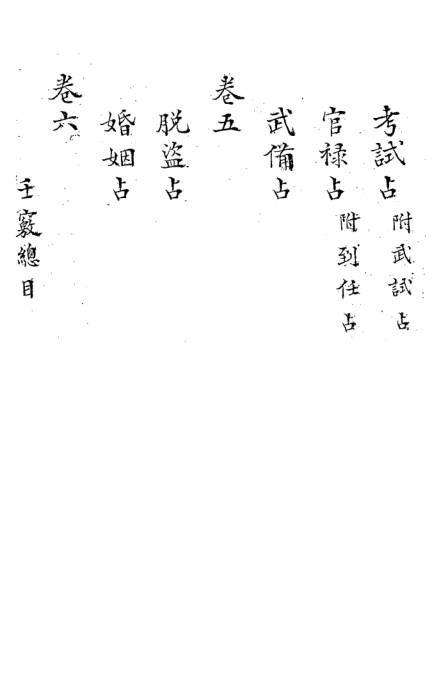 考試占附武試占
官禄占附到任占
武備占
卷五
脱盜占
婚姻占
卷六
壬竅總目